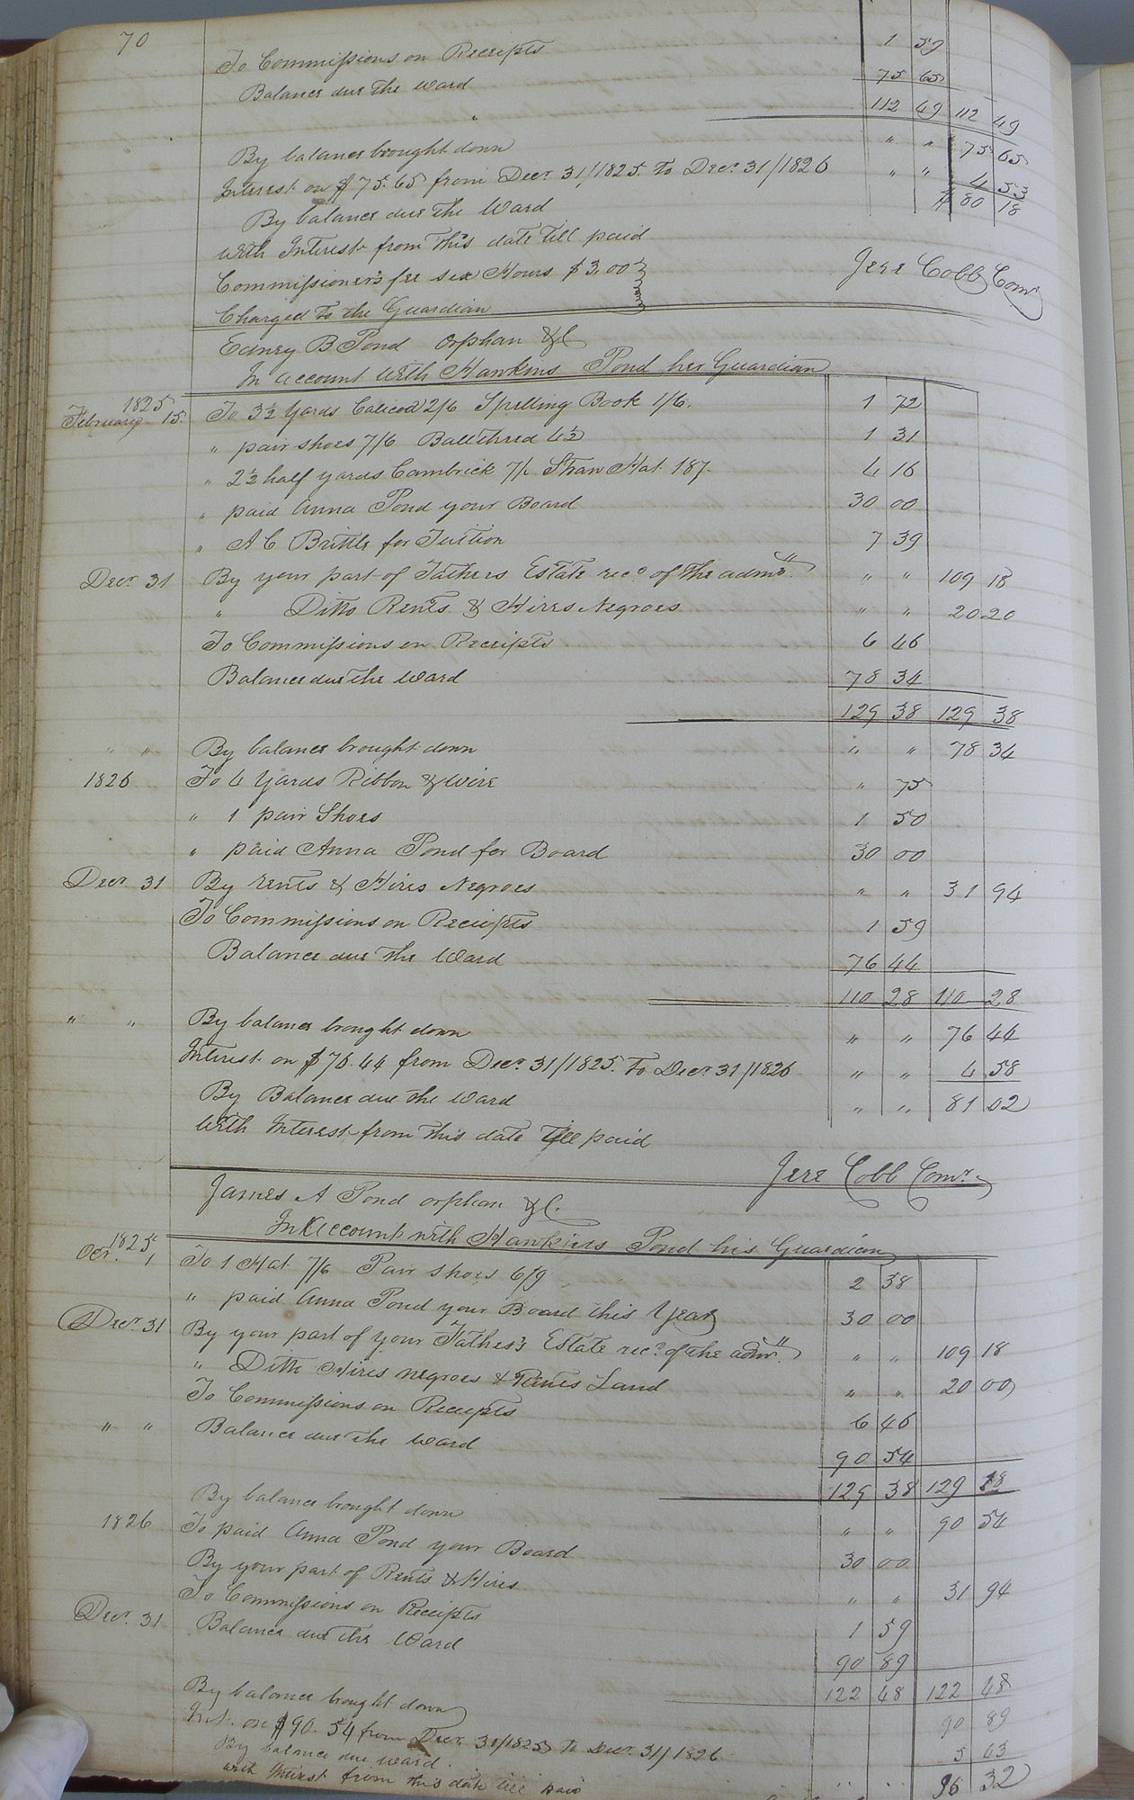 70
To Commissions on Receipts 1 59
Balance due the Ward 75 65
112 49 112 49
By balance brought down " " 75 65
Interest on $75.65 from Decr 31/1825 To Decr 31/1826 " " 4 53
By balance due the Ward $ 80 18
with Interest from this date till paid
Commissioner's fee six Hours $3.00
Charged To the Guardian
Jere Cobb Comr
Edney B Pond Orphan &C
In account with Hawkins Pond her Guardian
1825
February 15 To 3½ Yards Calico 2/6 Spelling Book 1/6. 1 72
" pair shoes 7/6 Ball thred 4½ 1 31
" 2½ half yards Cambrick 7/6 Straw Hat 187. 4 16
" paid Anna Pond your Board 30 00
" A C Brittle for Tuition 7 39
Decr 31 By your part of Fathers Estate recd of the admr " " 109 18
" Ditto Rents & Hires Negroes " " 20 20
To Commissions on Receipts 6 46
Balance due the Ward 78 34
129 38 129 38
" " By balance brought down " " 78 34
1826 To 4 Yards Ribbon & Wire " 75
" 1 pair Shoes 1 50
" paid Anna Pond for Board 30 00
Decr 31 By Rents & Hires Negroes " " 31 94
To Commissions on Receipts 1 59
Balance due the Ward 76 44
110 28 110 28
" " By balance brought down " " 76 44
Interest on $76.44 from Decr 31/1825 To Decr 31/1826 " " 4 58
By Balance due the Ward " " 81 02
With Interest from this date till paid
Jere Cobb Comr
James A Pond orphan &C.
In account with Hawkins Pond his Guardian
1825
Oct. 1 To 1 Hat 7/6 Pair shoes 6/9 2 38
" paid Anna Pond your Board this Year 30 00
Decr 31 By your part of your Father's Estate recd of the admr " " 109 18
" Ditto Hires negroes & Rents Land " " 20 00
To Commissions on Receipts 6 46
" " Balance due the Ward 90 54
129 38 129 38
By balance brought down " " 90 54
1826 To paid Anna Pond your Board 30 00
By your part of Rents & Hires " " 31 94
To Commissions on Receipts 1 59
Decr 31 Balance due the Ward 90 89
122 48 122 48
By balance brought down 90 89
Int. on $90.54 from Decr 31/1825 To Decr 31/1826 5 43
By balance due ward. " " 96 32
with Interest from this date till paid